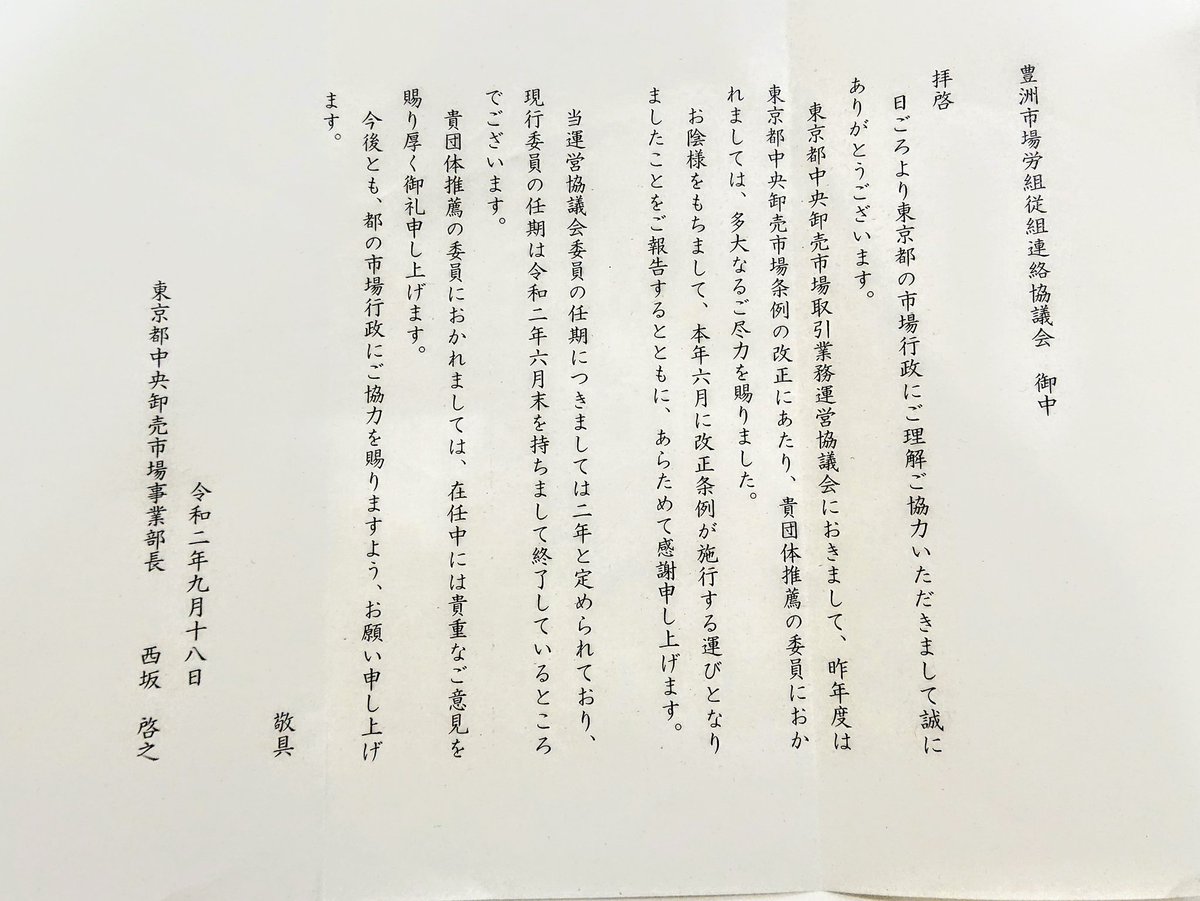 豊洲市場労組従組連絡協議会　御中
拝啓
日ごろより東京都の市場行政にご理解ご協力いただきまして誠に
ありがとうございます。
東京都中央卸売市場取引業務運営協議会におきまして、昨年度は
東京都中央卸売市場条例の改正にあたり、貴団体推薦の委員におか
れましては、多大なるご尽力を賜りました。
お陰様をもちまして、本年六月に改正条例が施行する運びとなり
ましたことをご報告するとともに、あらためて感謝申し上げます。
当運営協議会委員の任期につきましては二年と定められており、
現行委員の任期は令和二年六月末を持ちまして終了しているところ
でございます。
貴団体推薦の委員におかれましては、在任中には貴重なご意見を
賜り厚く御礼申し上げます。
今後とも、都の市場行政にご協力を賜りますよう、お願い申し上げ
ます。
敬具
令和二年九月十八日
東京都中央卸売市場事業部長　西坂　啓之